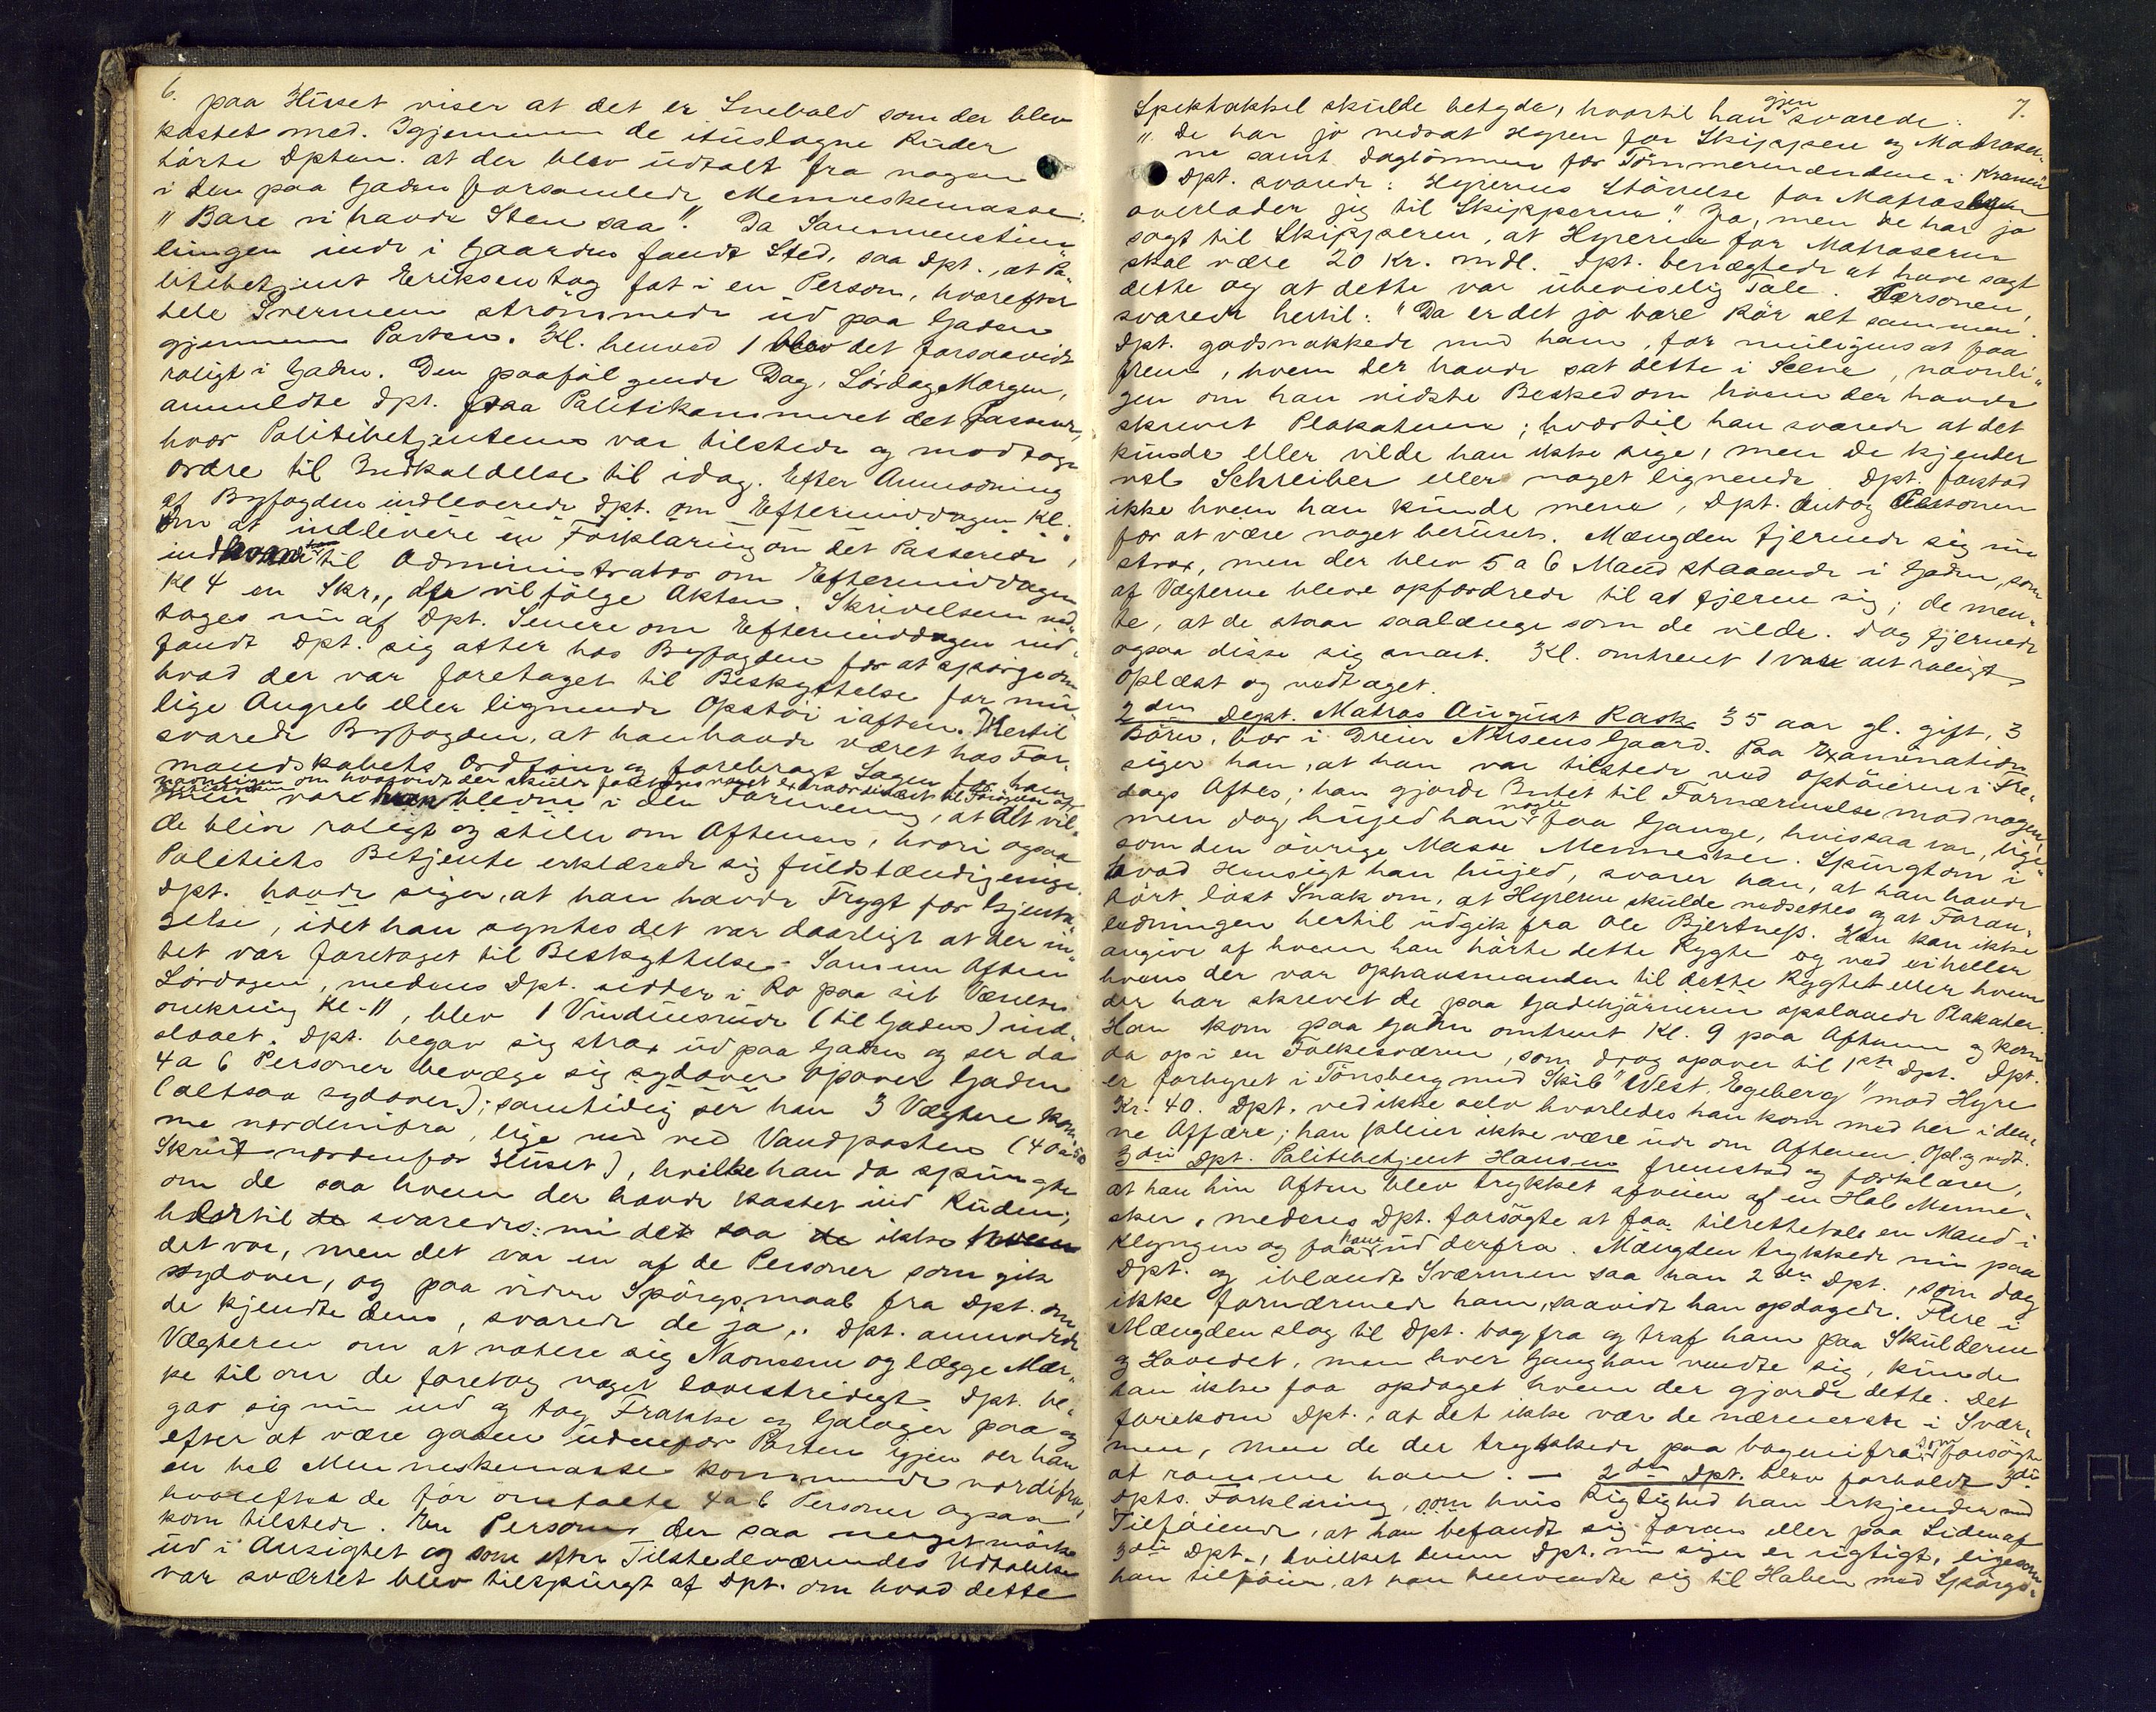 6.
paa Huset viser at det er Snebold som der blev
kastet med. Igjennem de ituslagne Ruder
hørte Dpten. at der blev udtalt fra nogen
i den paa Gaden forsamlede Menneskemasse:
"Bare vi havde Sten saa". Da Sammenstim"
lingen inde i Gaarden fandt Sted, saa Dpt., at Po"
litibetjent Eriksen tog fat i en Person, hvorefter
hele Svermen strømmede ud paa Gaden
gjennem Porten. Kl. henved 1 blev det forsaavidt
roligt i Gaden. Den paafølgende Dag, Lørdag Morgen,
anmeldte Dpt. paa Politikammeret det Passerede,
hvor Politibetjentene var tilstede og modtog
Ordre til Indkaldelse til idag. Efter Anmodning
af Byfogden indleverede Dpt. om Eftermiddagen Kl.
om at indlevere en Forklaring om det Passerede,
ind til Administrator om Eftermiddagen
Kl 4 en Skr., der vil følge Akten. Skrivelsen ved"
toges nu af Dpt. Senere om Eftermiddagen ind"
fandt Dpt. sig atter hos Byfogden for at spørge om
hvad der var foretaget til Beskyttelse for mu"
lige Angreb eller lignende Opstøi iaften. Hertil
svarede Byfogden, at han havde været hos For"
mandskabets Ordfører og forebragt Sagen for ham
navnligen om hvorvidt der skulde foretages noget extraordinært til Forøgelse af
men var blevne i den Formening, at Alt vil"
de blive roligt og stille om Aftenen, hvori ogsaa
Politiets Betjente erklærede sig fuldstændig enige.
Dpt. havde siger, at han havde Frygt for Gjenta"
gelse, idet han syntes det var daarligt at der in"
tet var foretaget til Beskyttelse. Samme Aften
Lørdagen, medens Dpt. sidder i Ro paa sit Værelse
omkring Kl. 11, blev 1 Vinduesrude (til Gaden) ind"
slaaet. Dpt. begav sig strax ud paa Gaden og ser da
4 a 6 Personer bevæge sig sydover opover Gaden
(altsaa sydover); samtidig ser han 3 Vægtere kom"
me nordenifra, lige ned ved Vandposten (40 a 50
Skridt nordenfor Huset), hvilke han da spurgte
om de saa hvem der havde kastet ind Ruden,
hvortil de svaredes: nu det saa de ikke hvem
det var, men det var en af de Personer som gik
sydover, og paa videre Spørgsmaal fra Dpt. om
de kjendte dem, svarede de ja,. Dpt. anmodede
Vægteren om at notere sig Navnene og lægge Mær"
ke til om de foretog noget lovstridigt. Dpt. be"
gav sig nu ind og tog Frakke og Galoger paa og
efter at være gaaen udenfor Porten igjen ser han
en hel Menneskemasse kommende nordifra,
hvorefter de før omtalte 4 a 6 Personer ogsaa
kom tilstede. En Person, der saa meget mørk
ud i Ansigtet og som efter Tilstedeværendes Udtalelse
var sværtet blev tilspurgt af Dpt. om hvad dette
7.
Spektakkel skulde betyde, hvortil han gjen svarede:
"De har jo nedsat Hyren for Skippere og Matroser"
ne samt Daglønnen for Tømmermændene i Kranen"
Dpt. svarede: Hyrernes Størrelse for Matroserne
overlader jeg til Skipperne." Ja, men De har jo
sagt til Skipperen, at Hyrerne for Matroserne
skal være 20 Kr. mdl. Dpt. benægtede at have sagt
dette og at dette var ubeviselig Tale. Personen,
svarede hertil: "Da er det jo bare Rør alt sammen".
Dpt. godsnakkede med ham, for muligens at faa
frem, hvem der havde sat dette i Scene, navnli"
gen om han vidste Besked om hvem der havde
skrevet Plakaterne; hvortil han svarede at det
kunde eller vilde han ikke sige, men De kjender
vel Schreiber eller noget lignende. Dpt. forstod
ikke hvem han kunde mene, Dpt. antog Personen
for at være noget beruset. Mængden fjernede sig nu
strax, men der blev 5 a 6 Mand staaende i Gaden, som
af Vægterne bleve opfordrede til at fjerne sig; de men"
te, at de staar saalænge som de vilde. Dog fjernede
ogsaa disse sig snart. Kl. omtrent 1 var alt roligt
Oplæst og vedtaget.
2den Dept. Matros August Rask 35 aar gl. gift, 3
Børn, bor i Dreier Nilsens Gaard. Paa Examination
siger han, at han var tilstede ved optøierne i Fre"
dags Aftes; han gjorde Intet til Fornærmelse mod nogen
men dog hujed han nogle faa Gange, hvis saa var, lige"
som den øvrige Masse Mennesker. Spurgt om i
hvad Hensigt han hujed, svarer han, at han havde
hørt løst Snak om, at Hyrerne skulde nedsettes og at Foran"
ledningen hertil udgik fra Ole Bjertnæss. Han kan ikke
angive af hvem han hørte dette Rygte og ved ei heller
hvem der var Ophavsmanden til dette Rygtet eller hvem
der har skrevet de paa Gadehjørnerne opslaaede Plakater.
Han kom paa Gaden omtrent Kl. 9 paa Aftenen og kom
da op i en Folkesværm, som drog opover til 1ste Dpt. Dpt.
er forhyret i Tønsberg med Skib "West. Egeberg" mod Hyre
Kr. 40. Dpt. ved ikke selv hvorledes han kom med her i den"
ne Affære; han pleier ikke være ude om Aftenen. Opl. og vedt.
3die Dpt. Politibetjent Hansen fremstod og forklarer,
at han hin Aften blev trykket afveien af en Hob Menne"
sker, medens Dpt. forsøgte at faa tilrettetale en Mand i
Klyngen og faa ham ud derfra. Mængden trykkede nu paa
Dpt. og iblandt Sværmen saa han 2den Dpt., som dog
ikke fornærmede ham, saavidt han opdagede. Flere i
Mængden slog til Dpt. bag fra og traf ham paa Skulderen
og Hovedet, men hver Gang han vendte sig, kunde
han ikke faa opdaget hvem der gjorde dette. Det
forekom Dpt., at det ikke var de nærmeste i Svær"
men, men de der trykkede paa bagenifra som forsøgte
at ramme ham. — 2den Dpt. blev forholdt 3die
Dpts. Forklaring, som hvis Rigtighed han erkjender med
Tilføiende, at han befandt sig foran eller paa Siden af
3die Dpt., hvilket denne Dpt. nu siger er rigtigt, ligesom
han tilføier, at han henvendte sig til Hoben med Spørgs"